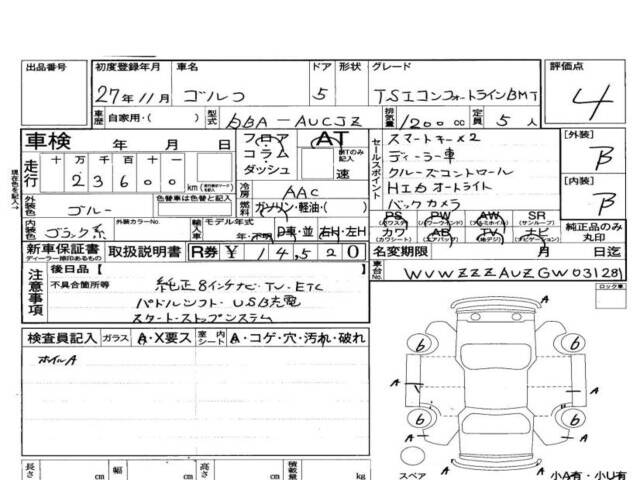 出品番号 初度登録年月 車名 ドア 形状 グレード 評価点
27年11月 ゴルフ 5 TSIコンフォートラインBMT 4
車歴 自家用・( ) 型式 DBA-AUCJZ 排気量 1200cc 定員 5人
車検 年 月 日 フロア コラム ダッシュ AT 速
走行 十 万 千 百 十 一 km
2 3 6 0 0
冷房 AAC
燃料 ガソリン・軽油・( )
セールスポイント
スマートキー×2
ディーラー車
クルーズコントロール
HIDオートライト
バックカメラ
[外装] B
[内装] B
外装色 ブルー 色替車は色替と記入
内装色 ブラック系 外装カラーNo. 輸入車 モデル年式 年・不明 D車・並 右H・左H
PS PW AW SR
(パワステ) (パワーウインドウ) (アルミホイル) (サンルーフ)
カワ AB TV ナビ
(カワシート) (エアバッグ) (地デジ) (ナビゲーション)
純正品のみ丸印
新車保証書 取扱説明書 R券 ¥ 14,520 名変期限 月 日迄
ディーラー捺印あるもの
車台No. WVWZZZAUZGW031281
注意事項
後日品[ ]
不具合箇所等 純正8インチナビ・TV・ETC
パドルシフト・USB充電
スタート・ストップシステム
ロック車
検査員記入 ガラス A・X要ス 室内シート A・コゲ・穴・汚れ・破れ
ホイルA
6 6
A A
6 6
A A
スペア 小A有・小U有
長さ cm 幅 cm 高さ cm 積載量 kg
現在色を記入→